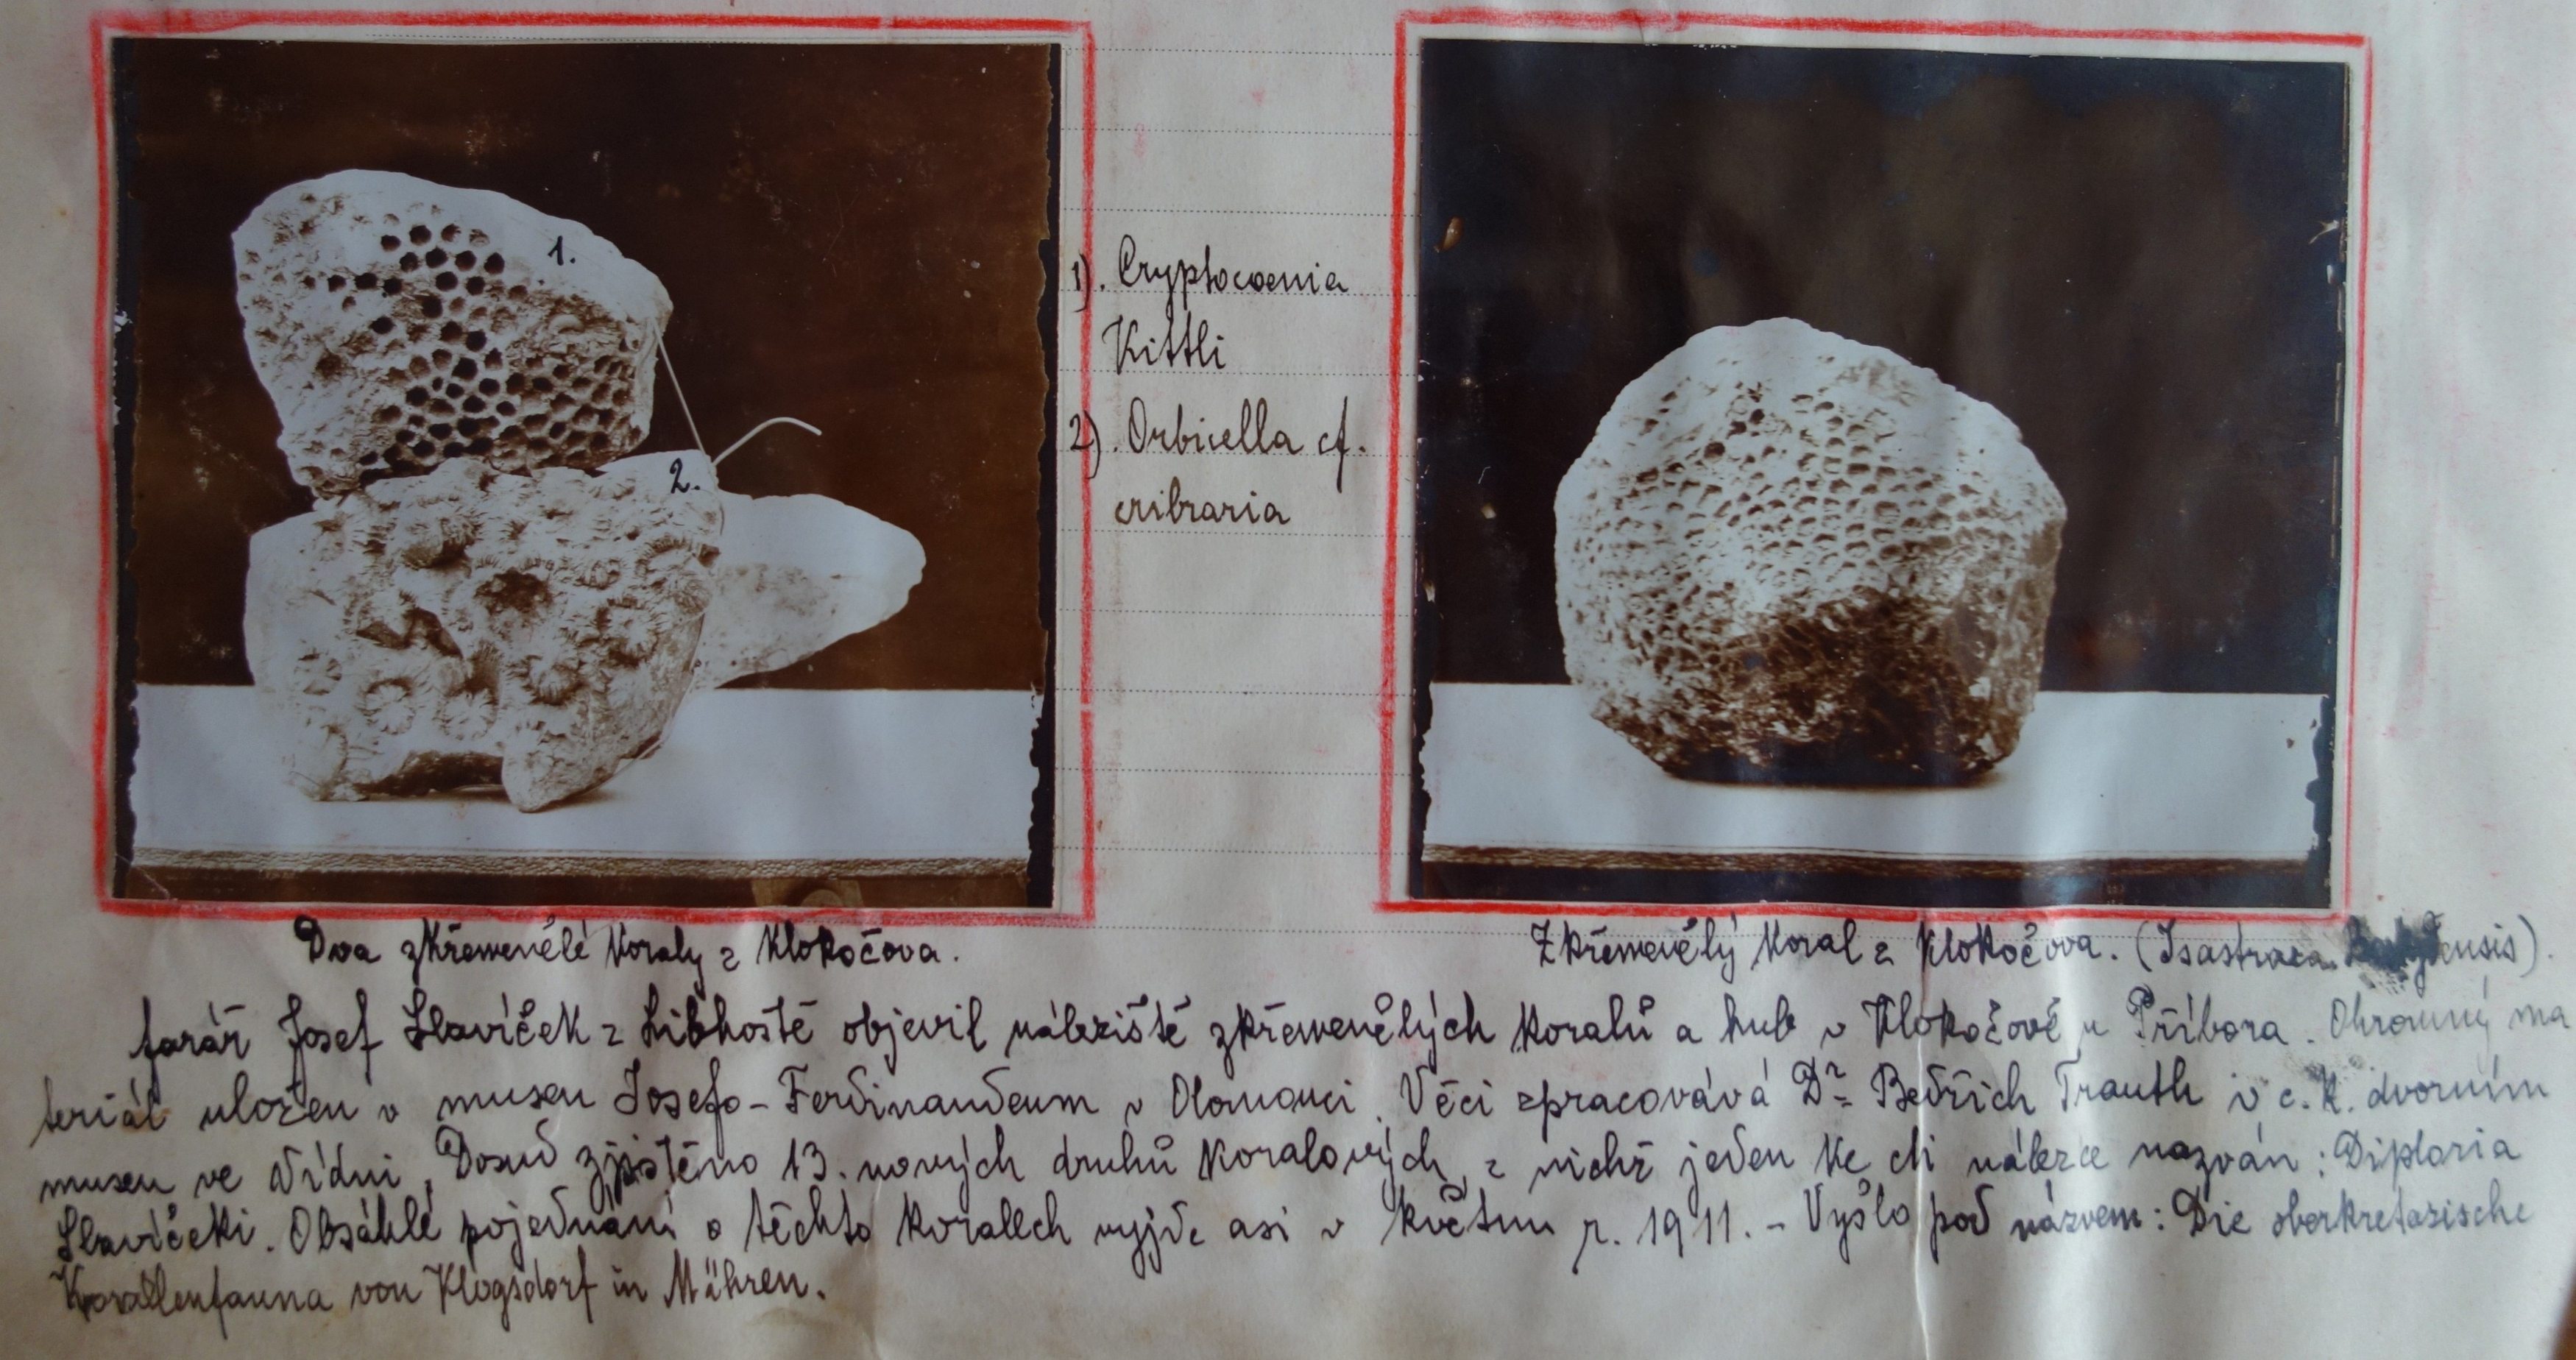 1.
2.
1). Cryptocoenia
Kittli
2). Orbicella cf.
cribraria
Dva zkřemenělé Koraly z Klokočova.
Zkřemenělý Koral z Klokočova. (Isastraea
farář Josef Slavíček z Libhoště objevil náleziště zkřemenělých Koralů a hub v Klokočově u Příbora. Ohromný ma
teriál uložen v museu Josefo-Ferdinandeum v Olomouci. Věci zpracovává Dr Bedřich Trauth v c. K. dvorním
museu ve Vídni. Dosud zjištěno 13. nových druhů Koralových, z nichž jeden Ke cti nálezce nazván: Diploria
Slavíčeki. Obsáhlé pojednání o těchto Korallech vyjde asi v Květnu r. 1911. - Vyšlo pod názvem: Die oberkretazische
Korallenfauna von Klogsdorf in Mähren.